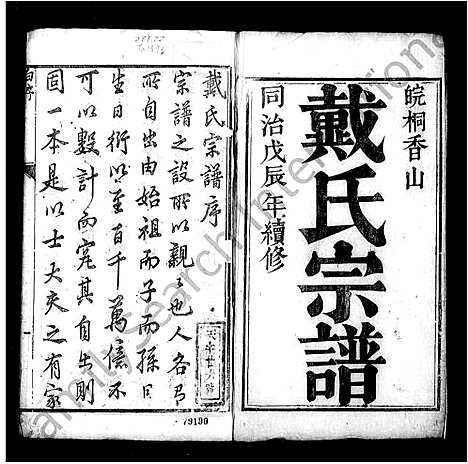 皖桐香山
戴氏宗譜
同治戊辰年續修
戴氏宗譜序
宗譜之設所以親親也人各有
所自出由始祖而子而孫日
生日衍以至百千萬億不
可以數計而究其自出則
固一本是以士大夫之有家
79190
FamilySearch International